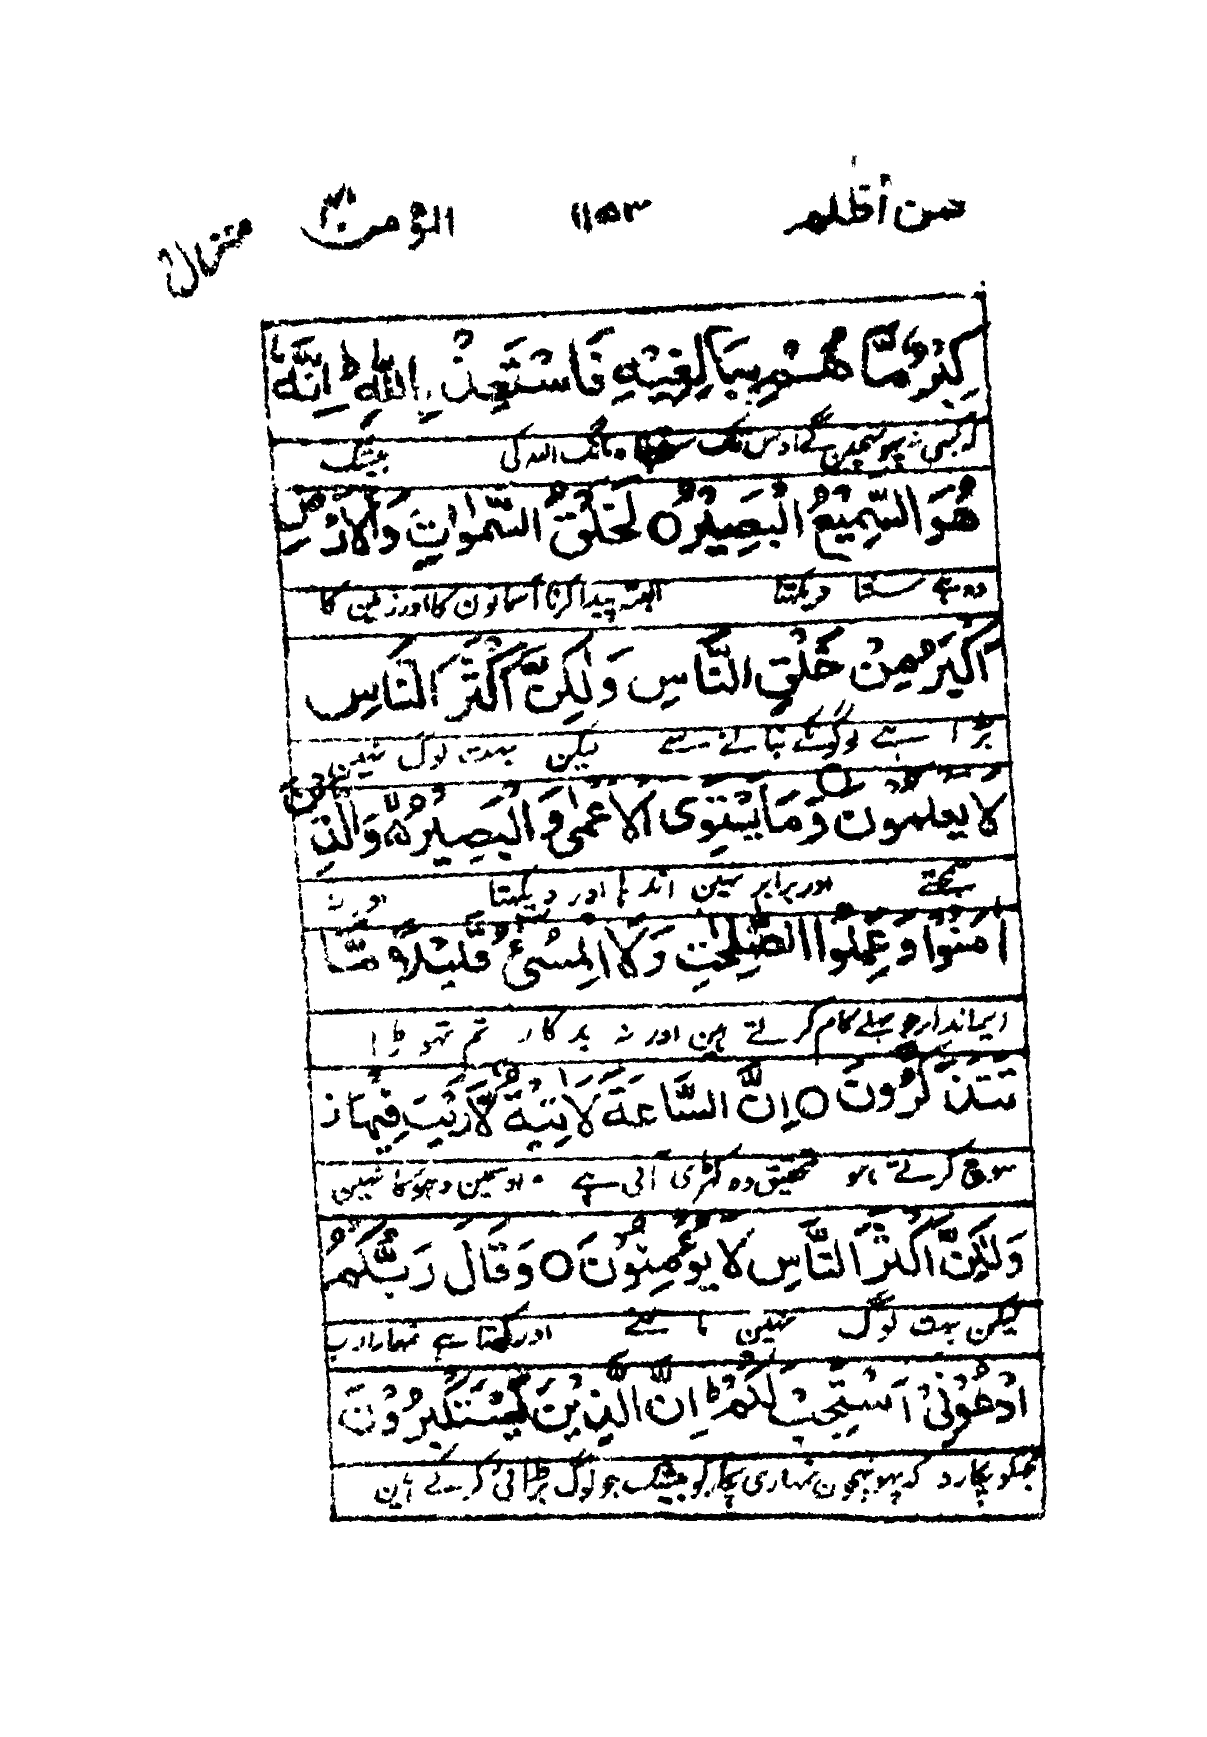 فمن أظلم ١١٥٣ المؤمن ٤٠ منزل
كِبْرٌ مَّا هُمْ بِبَالِغِيْهِ فَاسْتَعِذْ بِاللّٰهِ ؕ اِنَّهٗ
کہ کبھی نہ پہونچیں گے اوس تک پناہ مانگ اللہ کی بیشک
هُوَ السَّمِيْعُ الْبَصِيْرُ ○ لَخَلْقُ السَّمٰوٰتِ وَالْاَرْضِ
وہ ہے سنتا دیکھتا البتہ پیدا کرنا آسمانون کا اور زمین کا
اَكْبَرُ مِنْ خَلْقِ النَّاسِ وَلٰكِنَّ اَكْثَرَ النَّاسِ
بڑا ہے لوگوں کے بنانے سے لیکن بہت لوگ نہین
لَا يَعْلَمُوْنَ ○ وَمَا يَسْتَوِى الْاَعْمٰى وَ الْبَصِيْرُ ۙ۬ وَالَّذِيْنَ
سمجھتے اور برابر نہین اندہا اور دیکھتا اور نہ
اٰمَنُوْا وَ عَمِلُوا الصّٰلِحٰتِ وَلَا الْمُسِىْٓءُ قَلِيْلًا مَّا
ایماندار جو بھلے کام کرتے ہین اور نہ بدکار تم تھوڑا
تَتَذَكَّرُوْنَ ○ اِنَّ السَّاعَةَ لَاٰتِيَةٌ لَّا رَيْبَ فِيْهَا ز
سوچ کرتے ہو تحقیق وہ گھڑی آنی ہے اوسمین دھوکا نہین
وَلٰكِنَّ اَكْثَرَ النَّاسِ لَا يُؤْمِنُوْنَ ○ وَقَالَ رَبُّكُمُ
لیکن بہت لوگ نہین مانتے اور کہتا ہے تمھارا رب
ادْعُوْنِىْٓ اَسْتَجِبْ لَكُمْ ؕ اِنَّ الَّذِيْنَ يَسْتَكْبِرُوْنَ
مجھکو پکارو کہ پہونچون تمہاری پکار کو بیشک جو لوگ بڑائی کرتے ہین